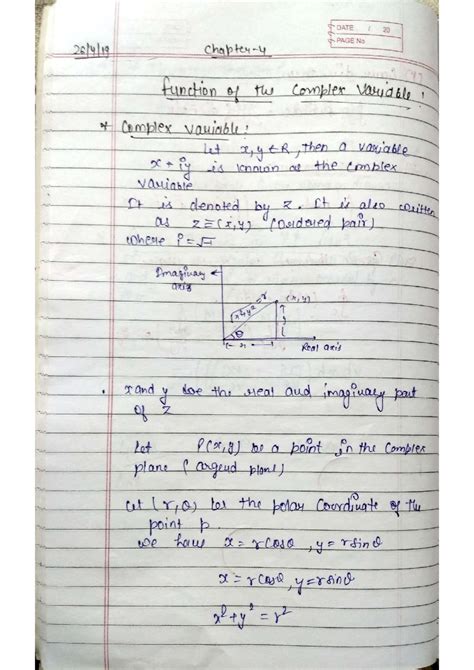 DATE / 20
PAGE No
26/4/19 Chapter-4
function of the Complex Variable!
* Complex Variable:
Let x,y ∈ R, then a variable
x + iy is known as the complex
variable
It is denoted by z. It is also written
as z ≡ (x,y) (ordered pair)
where i = √-1
Imaginary axis
(x,y)
√x²+y² = r
y
θ
x
Real axis
• x and y are the real and imaginary part
of z
Let P(x,y) be a point in the complex
plane (argand plane)
Let (r,θ) be the polar Coordinate of the
point p.
we have x = r cosθ, y = r sinθ
x = r cosθ, y = r sinθ
x² + y² = r²